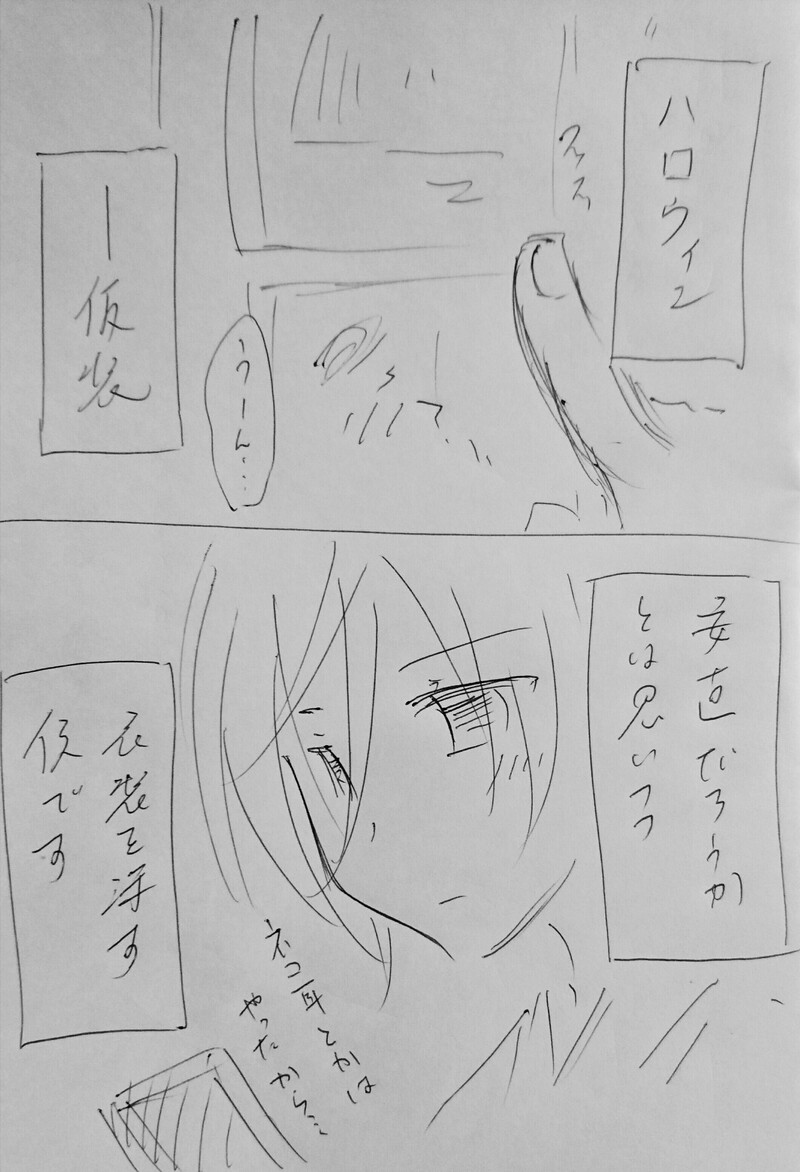 ハロウィン
スス
うーん…
ー仮装
安直だろうか
とは思いつつ
ネコ耳とかは
やったから…
衣装を
です